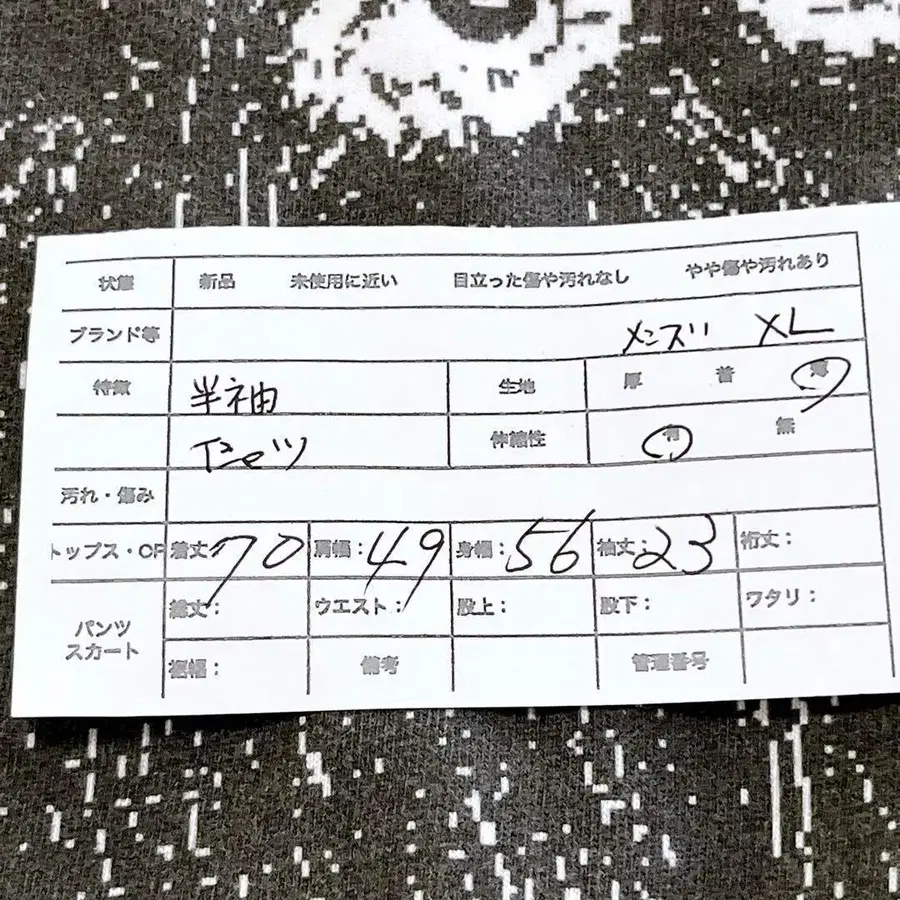 状態 新品 未使用に近い 目立った傷や汚れなし やや傷や汚れあり
ブランド等 メンズ XL
特徴 半袖 生地 厚 普 薄
Tシャツ 伸縮性 有 無
汚れ・傷み
トップス・OP 着丈:70 肩幅:49 身幅:56 袖丈:23 裄丈:
パンツ スカート 総丈: ウエスト: 股上: 股下: ワタリ:
裾幅: 備考 管理番号